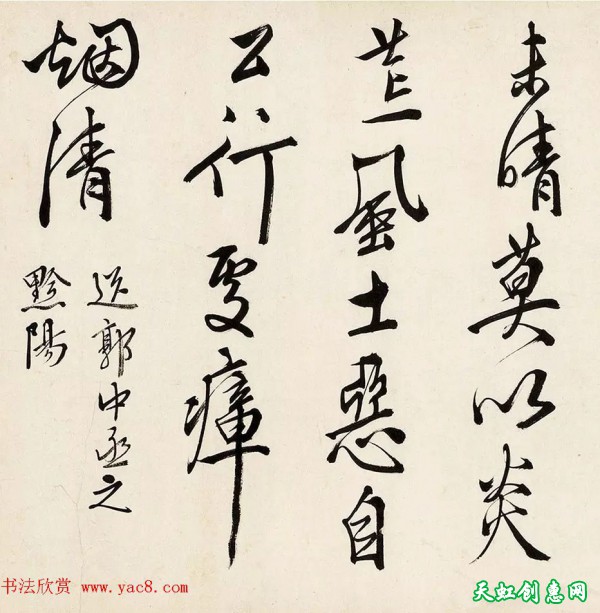 未晴莫以炎
荒風土惡自
公行處瘴
烟清
送郭中丞之
黔陽
书法欣赏 www.yac8.com
天虹创惠网